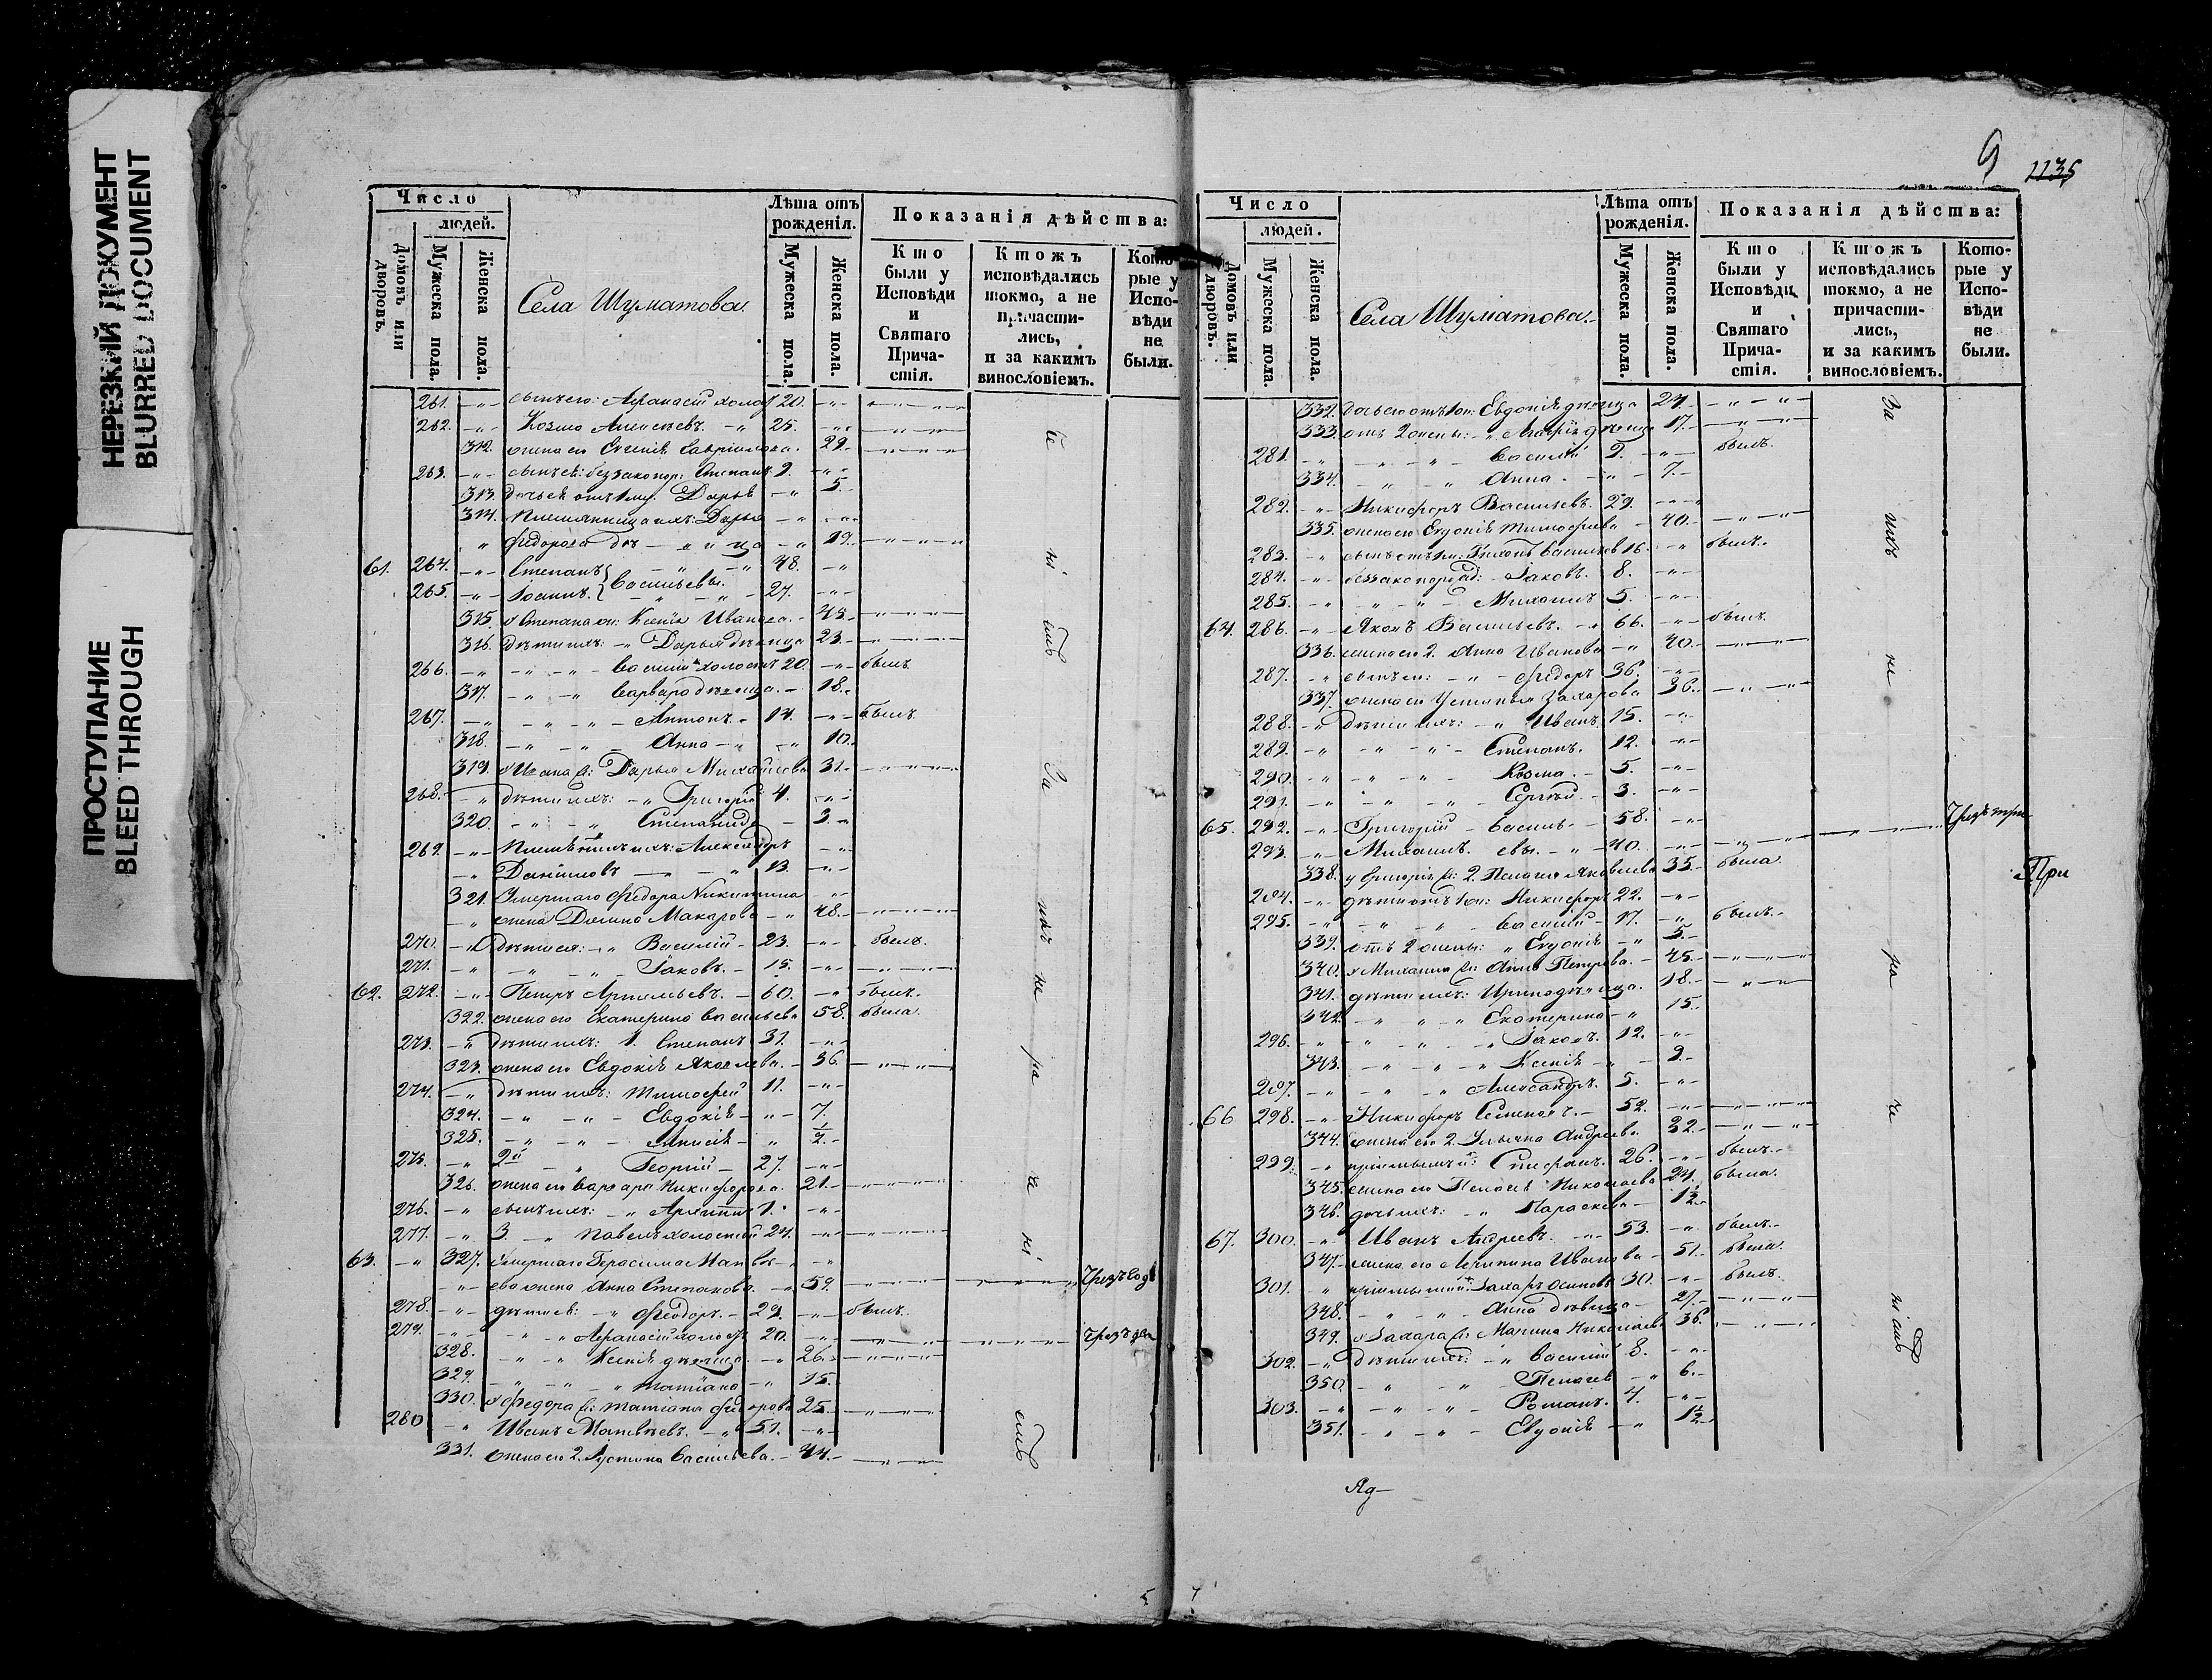 НЕРЕЗКИЙ ДОКУМЕНТ
BLURRED DOCUMENT
ПРОСТУПАНИЕ
BLEED THROUGH
Число
людей.
Домовъ или дворовъ.
Мужеска пола.
Женска пола.
Села Шуматова.
Лѣта отъ рожденія.
Мужеска пола.
Женска пола.
Показанія дѣйства:
Кто были у Исповѣди и Святаго Прича-стія.
Ктожъ исповѣдались токмо, а не причасти-лись, и за какимъ винословіемъ.
Кото-рые у Испо-вѣди не были.
261. сынъ его: Афанасій холос 20.
262. Козма Алексѣевъ 25.
312. жена его Евгенія Гавріилова. 29.
263. сынъ ея: беззакон: Степанъ 9.
313. дочь ея Дарья 5.
314. Племянница ихъ: Дарья
Федорова дѣвица 19.
61. 264. Степанъ 48.
265. Іоаннъ. Васильевы. 27.
315. у Степана ж: Ксенія Иванова. 43.
316. дѣти ихъ: Дарья дѣвица 23.
266. Василій холостъ 20. былъ
317. Варвара дѣвица. 18.
267. Антонъ 14. былъ
318. Анна 10.
319. у Ивана ж: Дарья Михайлова 31.
268. дѣти ихъ: Григорій 4.
320. Степанида 3.
269. Племянникъ ихъ: Александръ
Даніиловъ 13.
321. Умершаго Федора Никитина
жена Домна Макарова 48.
270. дѣти ея: Василій 23. былъ.
271. Іаковъ. 15.
62. 272. Петръ Артемьевъ. 60. былъ.
322. жена его Екатерина Васильева 58. была.
273. дѣти ихъ: 1. Степанъ 31.
323. жена его Евдокія Яковлева. 36.
274. дѣти ихъ: Тимофей 11.
324. Евдокія 7.
325. Анисія 1/2.
275. 2й Георгій 27.
326. жена его Варвара Никифорова. 21.
276. сынъ ихъ: Архиппъ 1.
277. 3. Павелъ холостой 24.
63. 327. Умершаго Герасима Матвѣ-
ева жена Анна Степанова. 59.
278. дѣти ея: Феодоръ. 29. былъ.
279. Афанасій холостъ 20.
328. Ксенія дѣвица 26.
329. Татіана 15.
330. у Федора ж: Татіана Федорова 25.
280 Иванъ Матвѣевъ. 51.
331. жена его 2. Устина Васильева. 44.
За нихъ не ра че ні емъ
9
1135
Число
людей.
Домовъ или дворовъ.
Мужеска пола.
Женска пола.
Села Шуматова.
Лѣта отъ рожденія.
Мужеска пола.
Женска пола.
Показанія дѣйства:
Кто были у Исповѣди и Святаго Прича-стія.
Ктожъ исповѣдались токмо, а не причасти-лись, и за какимъ винословіемъ.
Кото-рые у Испо-вѣди не были.
332. дочь его отъ 1 ж: Евдокія дѣвица 24.
333. отъ 2 жены: Марія дѣвица 17.
281. Василій 9. былъ.
334. Анна. 7.
282. Никифоръ Васильевъ. 29.
335. жена его Евдокія Тимофѣева 40.
283. сынъ отъ 1 ж: Тихонъ Васильев 16. былъ.
284. Іаковъ. 8.
285. Михаилъ 5.
64. 286. Яковъ Васильевъ. 66. былъ.
336. жена его 2. Анна Иванова 40.
287. сынъ ея: Федоръ 36.
337. жена его Устинья Захарова 36.
288. дѣти ихъ: Иванъ 15.
289. Степанъ. 12.
290. Козма. 5.
291. Сергѣй 3.
65. 292. Григорій Василь- 58.
293. Михаилъ евы. 40.
338. у Григорія ж: 2. Пелагія Яковлева 35. была.
294. дѣти отъ 1 ж: Никифоръ 22.
295. Василій 17. былъ.
339. отъ 2 жены: Евдокія 5.
340. у Михаила ж: Анна Петрова. 45.
341. дѣти ихъ: Ирина дѣвица. 18.
342. Екатерина 15.
296. Іаковъ. 12.
343. Ксенія 9.
297. Александръ. 5.
66 298. Никифоръ Семеновъ. 52.
344. жена его 2. Ульяна Андреева 32.
299. пріемышъ: Стефанъ. 26. былъ.
345. жена его Пелагія Николаева 24. была.
346. дочь ихъ: Параскева 1 1/2.
67. 300. Иванъ Андреевъ. 53. былъ.
347. жена его Агрипина Иванова 51. была.
301. пріемышъ: Захаръ Осиповъ 30. былъ.
348. Анна дѣвица 27.
349. у Захара ж: Марина Николаева 36.
302. дѣти ихъ: Василій 8.
350. Пелагея 6.
303. Романъ. 4.
351. Евдокія 1 1/2.
За нихъ не ра че ніемъ
При